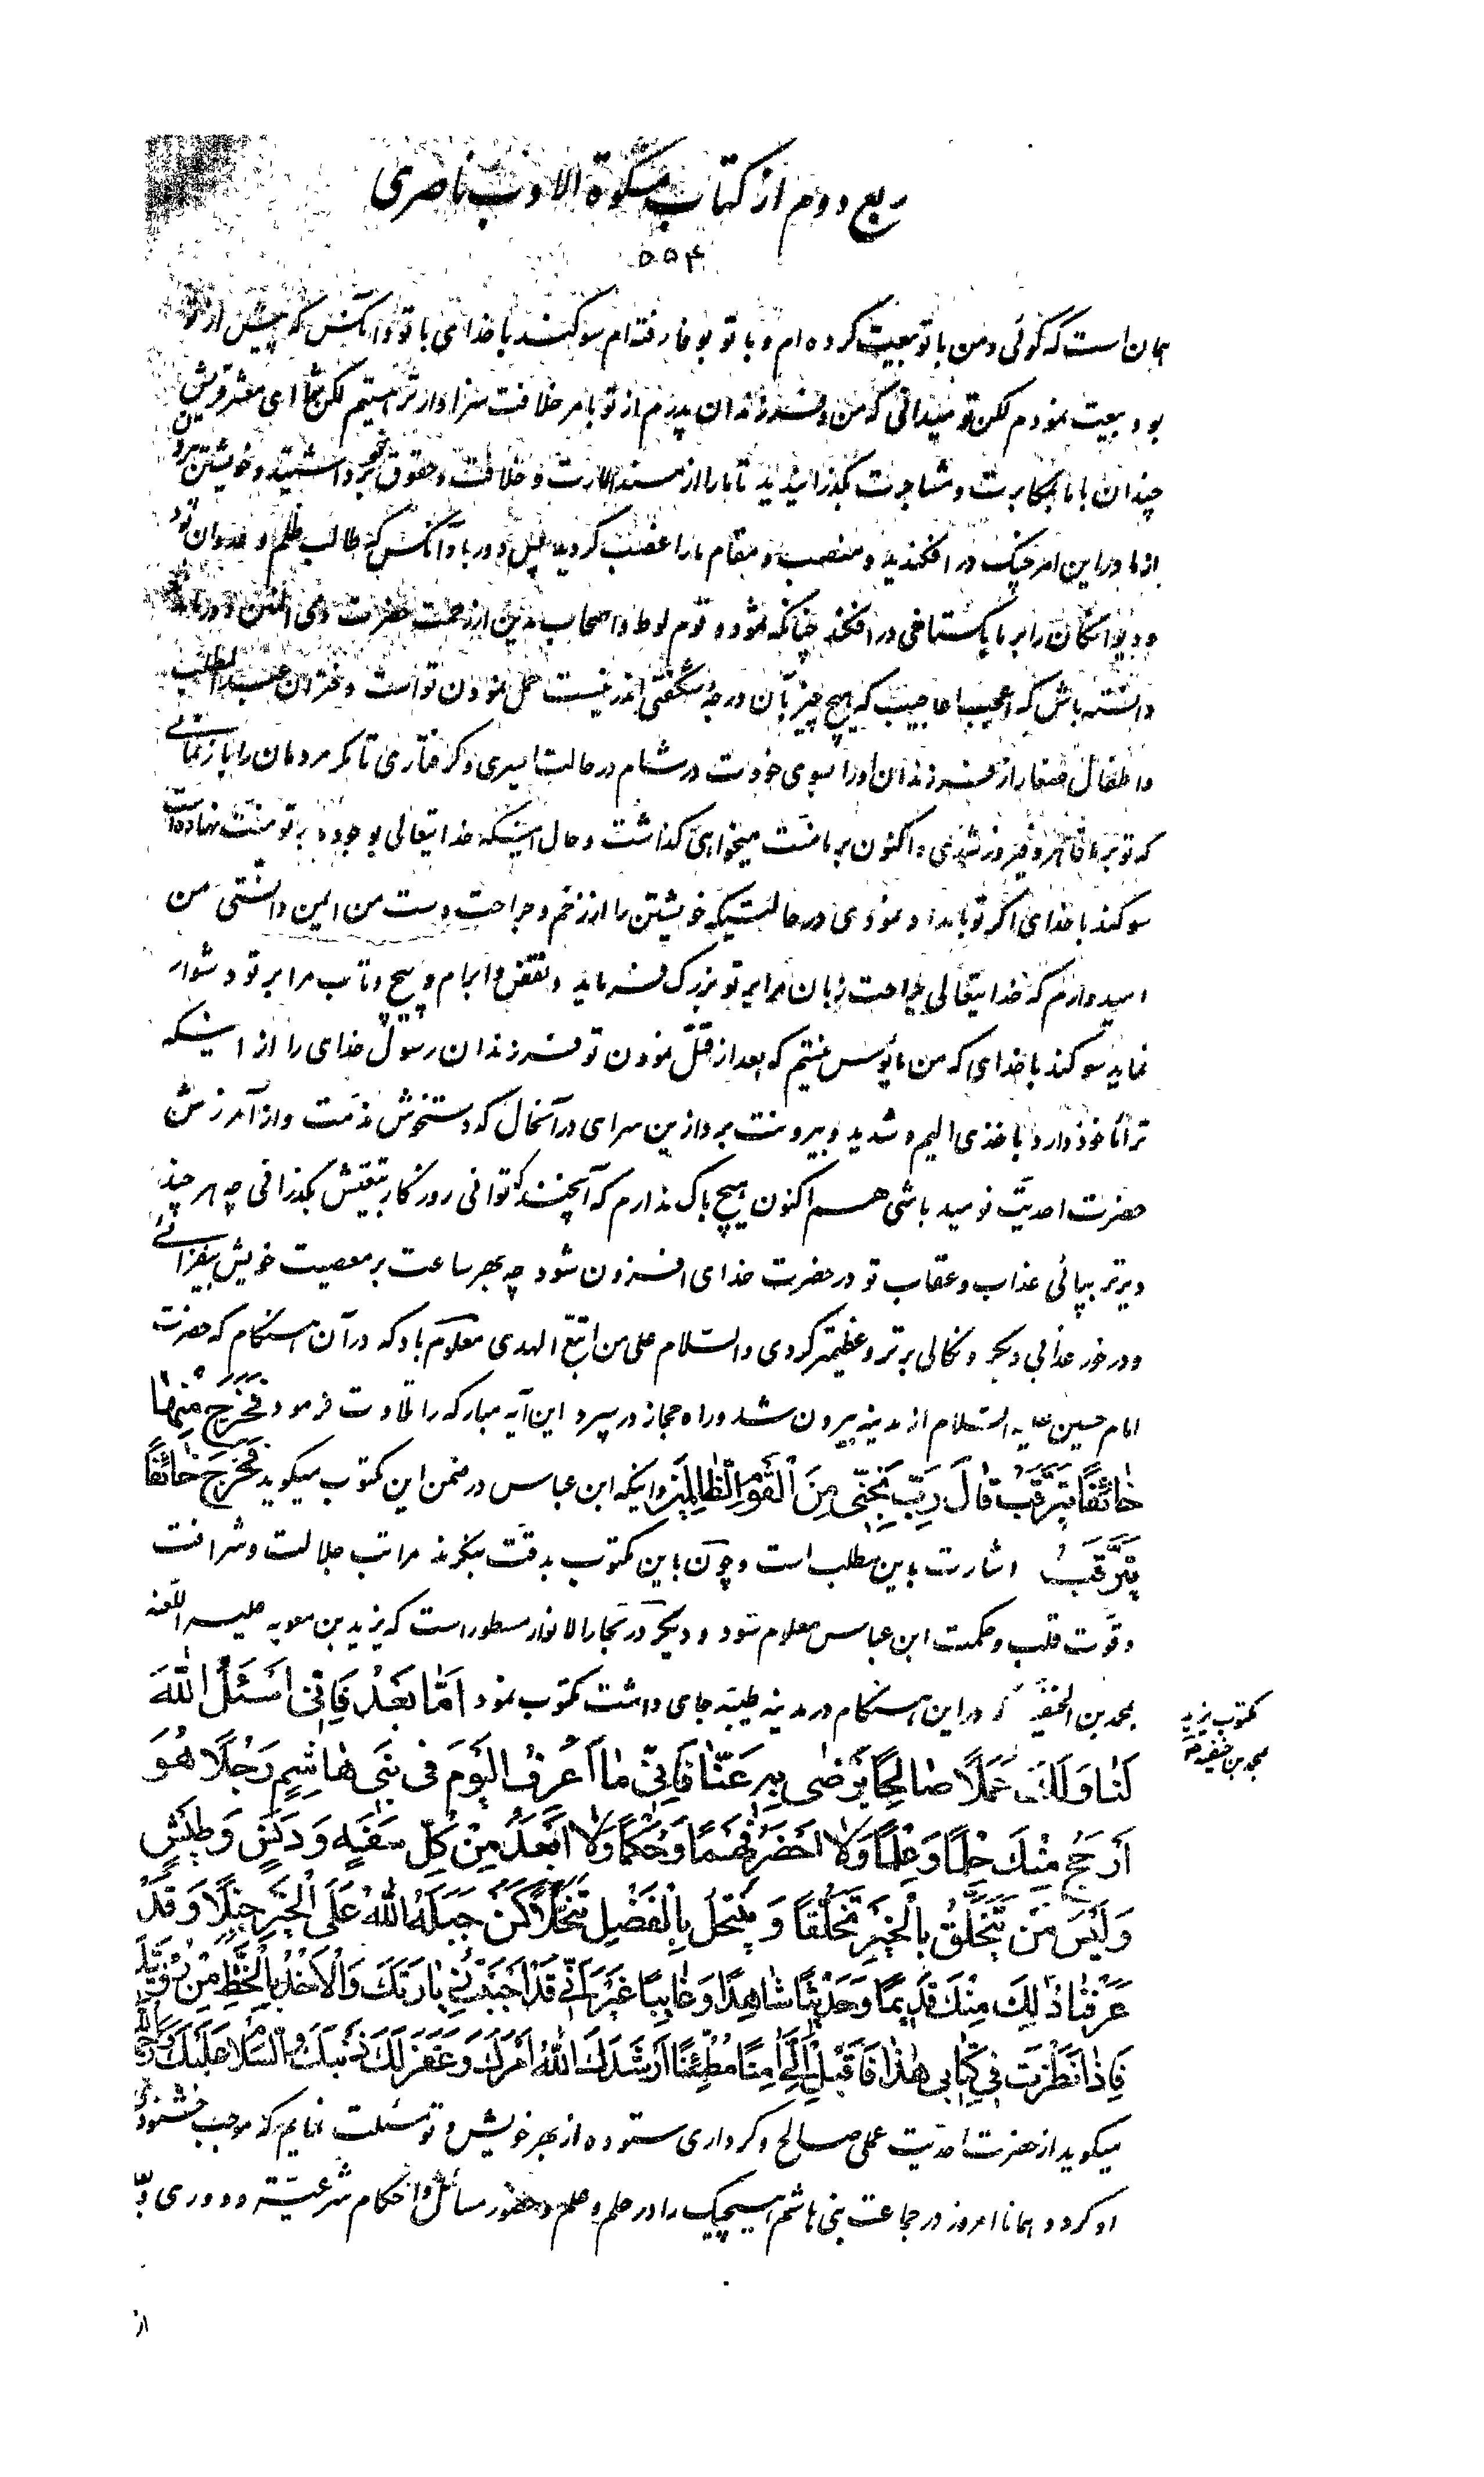 ربع دوم از کتاب مشکوة الادب ناصری
۵۵۴
همان است که گوئی و من با تو بیعت کرده ام و با تو بوفا رفته ام سوکند با خدای با تو و آنکس که پیش از تو
بود بیعت نمودم لکن تو میدانی که من و فرزندان پدرم از تو بامر خلافت سزاوارتر هستیم لکن شما ای معشر قریش
چندان با ما بمکابرت و مشاجرت بگذرانیدید تا ما را از مسند امارت و خلافت و حقوق خود برداشتید و خویشتن بیرون
از ما در این امر چنگ در افکندید و منصب و مقام ما را غصب کردید پس دور باد آنکس که طالب ظلم و عدوان تو
و دیوانگان را بر ما بگستاخی در افکند چنانکه ثمود و قوم لوط و اصحاب مدین از رحمت حضرت ذی المنن دور ماندند
دانسته باش که اعجب اعاجیب که هیچ چیز بآن درجه شگفتی اندر نیست حمل نمودن تو است دختران عبدالمطلب
و اطفال صغار از فرزندان او را بسوی خودت در شام در حالت اسیری و گرفتاری تا مگر مردمان را باز نمائی
که تو بر ما قاهر و فیروز شدی و اکنون بر ما منت میخواهی گذاشت و حال اینکه خدایتعالی بوجود ما بر تو منت نهاده است
سوکند با خدای اگر تو بامداد نمودی در حالتیکه خویشتن را از زخم و جراحت دست من ایمن دانستی من
امیدوارم که خدایتعالی جراحت زبان مرا بر تو بزرک فرماید و نقض و ابرام و پیچ و تاب مرا بر تو دشوار
نماید سوکند با خدای که من مایوس نیستم که بعد از قتل نمودن تو فرزندان رسول خدای را از اینکه
ترا ماخوذ دارد باخذی الیم و شدید و بیرونت بردازین سرای در آنحال که دستخوش مذمت و از آمرزش
حضرت احدیت نومید باشی هم اکنون هیچ باک ندارم که آنچند که توانی روزکار بتعیش بگذرانی چه هر چند
دیرتر بپائی عذاب و عقاب تو در حضرت خدای افزون شود چه بهر ساعت بر معصیت خویش بیفزائی
و در خور عذابی دیگر و نکالی برتر و عظیمتر گردی والسلام علی من اتبع الهدی معلوم باد که در آن هنگام که حضرت
امام حسین علیه السلام از مدینه بیرون شد و راه حجاز در سپرد این آیه مبارکه را تلاوت فرمود فَخَرَجَ مِنْهَا
خَائِفًا يَتَرَقَّبُ قَالَ رَبِّ نَجِّنِي مِنَ الْقَوْمِ الظَّالِمِينَ و اینکه ابن عباس در ضمن این مکتوب میگوید فَخَرَجَ خَائِفًا
يَتَرَقَّبُ اشارت باین مطلب است و چون باین مکتوب بدقت بنگرند مراتب جلالت و شرافت
و قوت قلب و حکمت ابن عباس معلوم شود و دیگر در بحار الانوار مسطور است که یزید بن معویه علیه اللعنه
بمحمد بن الحنفیه که در این هنگام در مدینه طیبه جای داشت مکتوب نمود اَمَّا بَعْدُ فَاِنّی اَسْئَلُ اللّٰهَ
مکتوب یزید
بمحمد بن حنفیه
لَنَا وَلَكَ عَمَلًا صَالِحًا يَرْضَى بِهِ عَنَّا فَاِنّی مَا اَعْرِفُ الْيَوْمَ فی بَنی هَاشِمٍ رَجُلًا هُوَ
اَرْجَحُ مِنْكَ حِلْمًا وَعِلْمًا وَلَا اَحْضَرُ فَهْمًا وَحُكْمًا وَلَا اَبْعَدُ مِنْ كُلِّ سَفَهٍ وَدَنَسٍ وَطَيْشٍ
وَلَيْسَ مَنْ يَتَخَلَّقُ بِالْخَيْرِ تَخَلُّقًا وَيَنْتَحِلُ بِالْفَضْلِ تَنَحُّلًا كَمَنْ جَبَلَهُ اللّٰهُ عَلَى الْخَيْرِ جَبْلًا وَقَدْ
عَرَفْنَا ذٰلِكَ مِنْكَ قَدِيمًا وَحَدِيثًا شَاهِدًا وَغَائِبًا غَيْرَ اَنّی قَدْ اَحْبَبْتُ زِيَارَتَكَ وَالْاَخْذَ بِالْحَظِّ مِنْ رُؤْيَتِكَ
فَاِذَا نَظَرْتَ فی كِتَابی هٰذَا فَاَقْبِلْ اِلَیَّ اٰمِنًا مُطْمَئِنًّا اَرْشَدَكَ اللّٰهُ اَمْرَكَ وَغَفَرَ لَكَ ذَنْبَكَ وَالسَّلَامُ عَلَيْكَ وَرَحْمَةُ اللّٰهِ
میگوید از حضرت احدیت عملی صالح و کرداری ستوده از بهر خویش و تو مسئلت نمایم که موجب خشنودی
او گردد و همانا امروز در جماعت بنی هاشم هیچیک را در حلم و علم و حضور مسائل و احکام شرعیة و دوری و
از